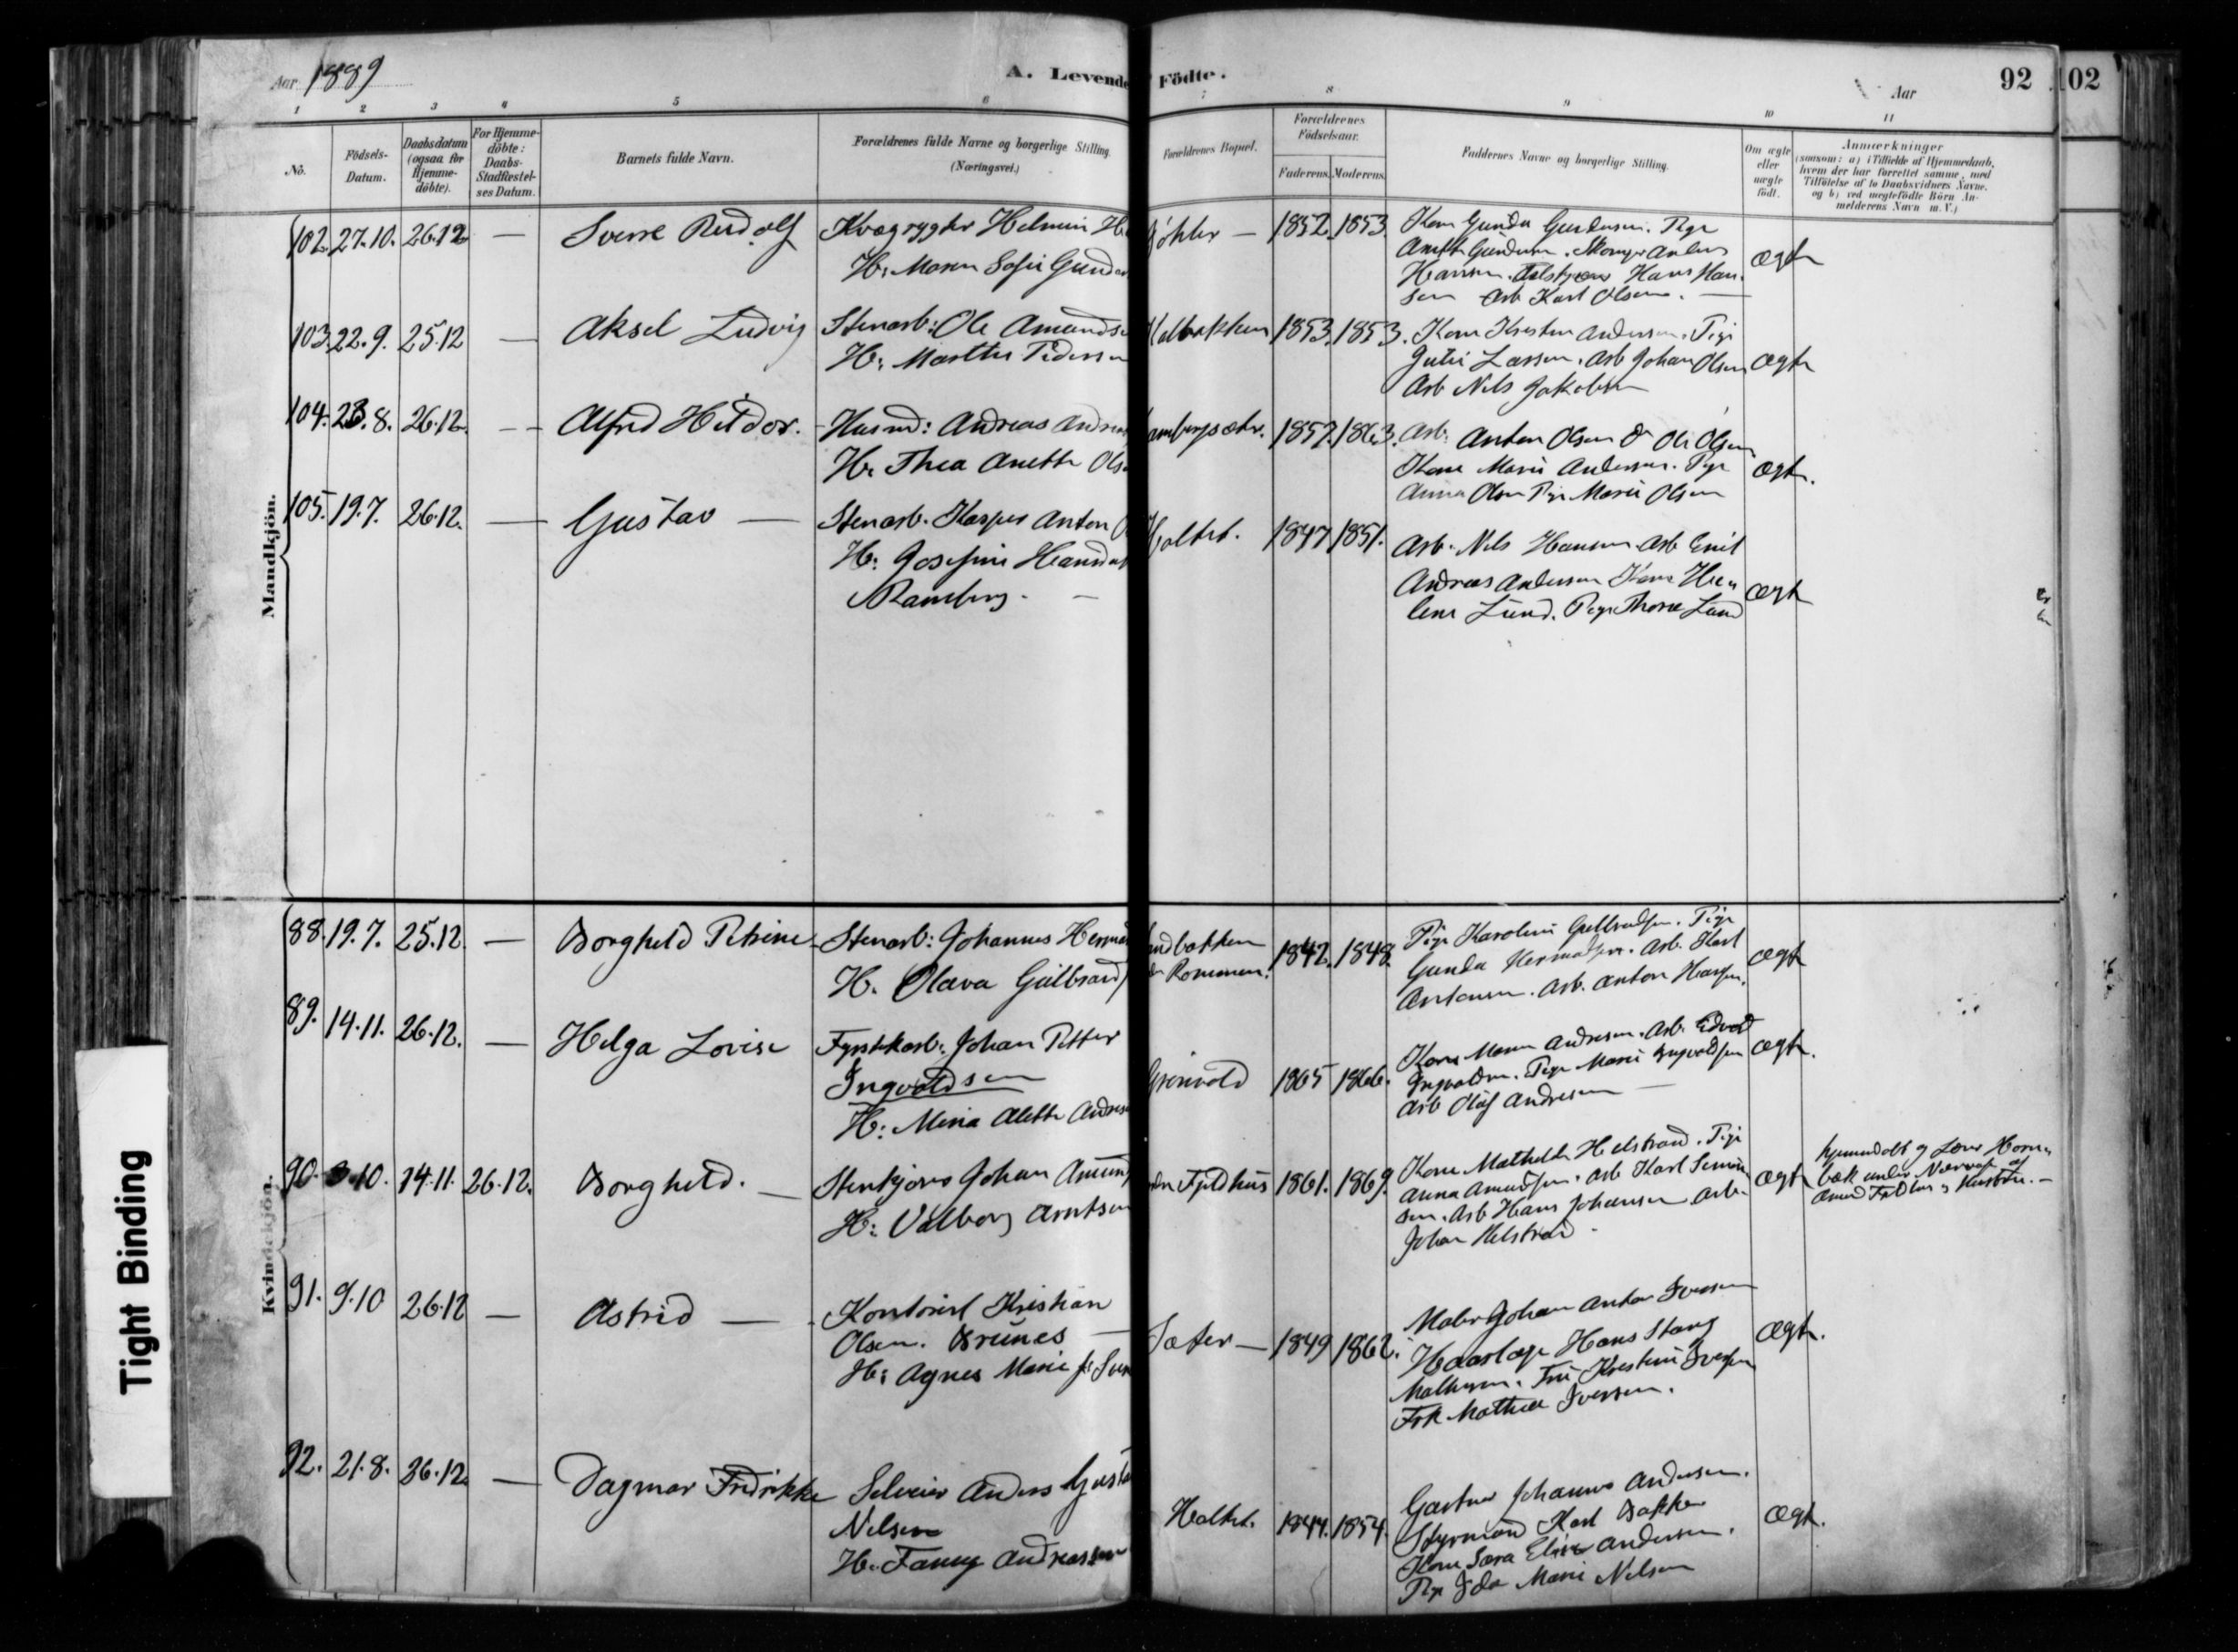 Aar 1889
A. Levende Fødte.
Aar
92
102
1 2 3 4 5 6 7 8 9 10 11
No.
Födsels-Datum.
Daabsdatum (ogsaa for Hjemme-döbte).
For Hjemme-döbte: Daabs-Stadfæstel-ses Datum.
Barnets fulde Navn.
Forældrenes fulde Navne og borgerlige Stilling. (Næringsvei.)
Forældrenes Bopæl.
Forældrenes Födselsaar.
Faderens. Moderens.
Faddernes Navne og borgerlige Stilling.
Om ægte eller uægte födt.
Anmærkninger
(saasom: a) i Tilfælde af Hjemmedaab,
hvem der har forrettet samme, med
Tilföielse af to Daabsvidners Navne.
og b) ved uægtefödte Börn An-
melderens Navn m. V.)
Mandkjön.
102. 27.10. 26.12 — Sverre Rudolf
H: Maren Sofie
1852. 1853.
Kone Gunda Gundersen. Pige
Hansen. Hans Han-
sen Arb Karl Olsen. —
ægte
103. 22.9. 25.12 — Aksel Ludvig
Stenarb: Ole Amundse
H: Marthe Pedersen
1853. 1853.
Kone Kristine Andersen. Pige
Julie Larsen. Arb Johan Olsen
Arb Nils Jakobsen
ægte
104. 23.8. 26.12. — Alfred Heldor.
Husmd: Andreas Andreas
H: Thea Anette Ols
1852. 1863.
Arb. Anton Olsen & Ole Olsen
Kone Marie Andersen. Pige
Anna Olsen Pige Marie Olsen
ægte.
105. 19.7. 26.12. — Gustav —
Stenarb. Kasper Anton
H: Josefine Hansdat
Ramberg. —
Holtet. 1847 1851.
Arb. Nils Hansen. Arb Emil
Andreas Andersen Kone He
lene Lund. Pige Thora Lund
ægte
Kvindekjön.
88. 19.7. 25.12. — Borghild Petrine
Stenarb: Johannes Herma
H. Olava Gulbrand
Rommen. 1842. 1848.
Pige Karoline Gulbrandsen. Pige
Gunda Hermansen. Arb. Karl
Antonsen. Arb. Anton Hansen.
ægte
89. 14.11. 26.12. — Helga Lovise
Fyrstikarb. Johan Petter
Ingvaldsen
H: Mina Alette Andres
Grönvold 1865 1866.
Kone Maren Andresen. Arb. Edvard
Ingvaldsen. Pige Marie Ingvaldsen
Arb Olaf Andresen —
ægte.
90. 3.10. 14.11. 26.12. Borghild. —
Stenkjører Johan Amund
H: Valborg Arntsen
Fjeldhus 1861. 1869.
Kone Mathilde Helstrand. Pige
Anna Amundsen. Arb Karl Simon
sen. Arb Hans Johansen Arb.
Johan Helstrand.
ægte
hjemmedøbt af Lærer Horne-
bæk under Nærvær af
Amund Fjeldhus og Hustru. —
91. 9.10 26.12 — Astrid —
Kontorist Kristian
Olsen. Brunes —
H: Agnes Marie f: Iver
Sæter — 1849 1862.
Maler Johan Anton Iversen
Hans Stang
Mathesen. Fru Kristine Iversen
Frk Mathea Iversen.
Ægte.
92. 21.8. 26.12. — Dagmar Fredrikke
Anders Gusta
Nilsen
H. Fanny Andreassen
Holtet. 1844. 1854.
Gartner Johannes Andersen.
Styrmand Karl Bakke
Kone Sara Elise Andersen.
Pige Ida Marie Nilsen
Ægte.
Tight Binding